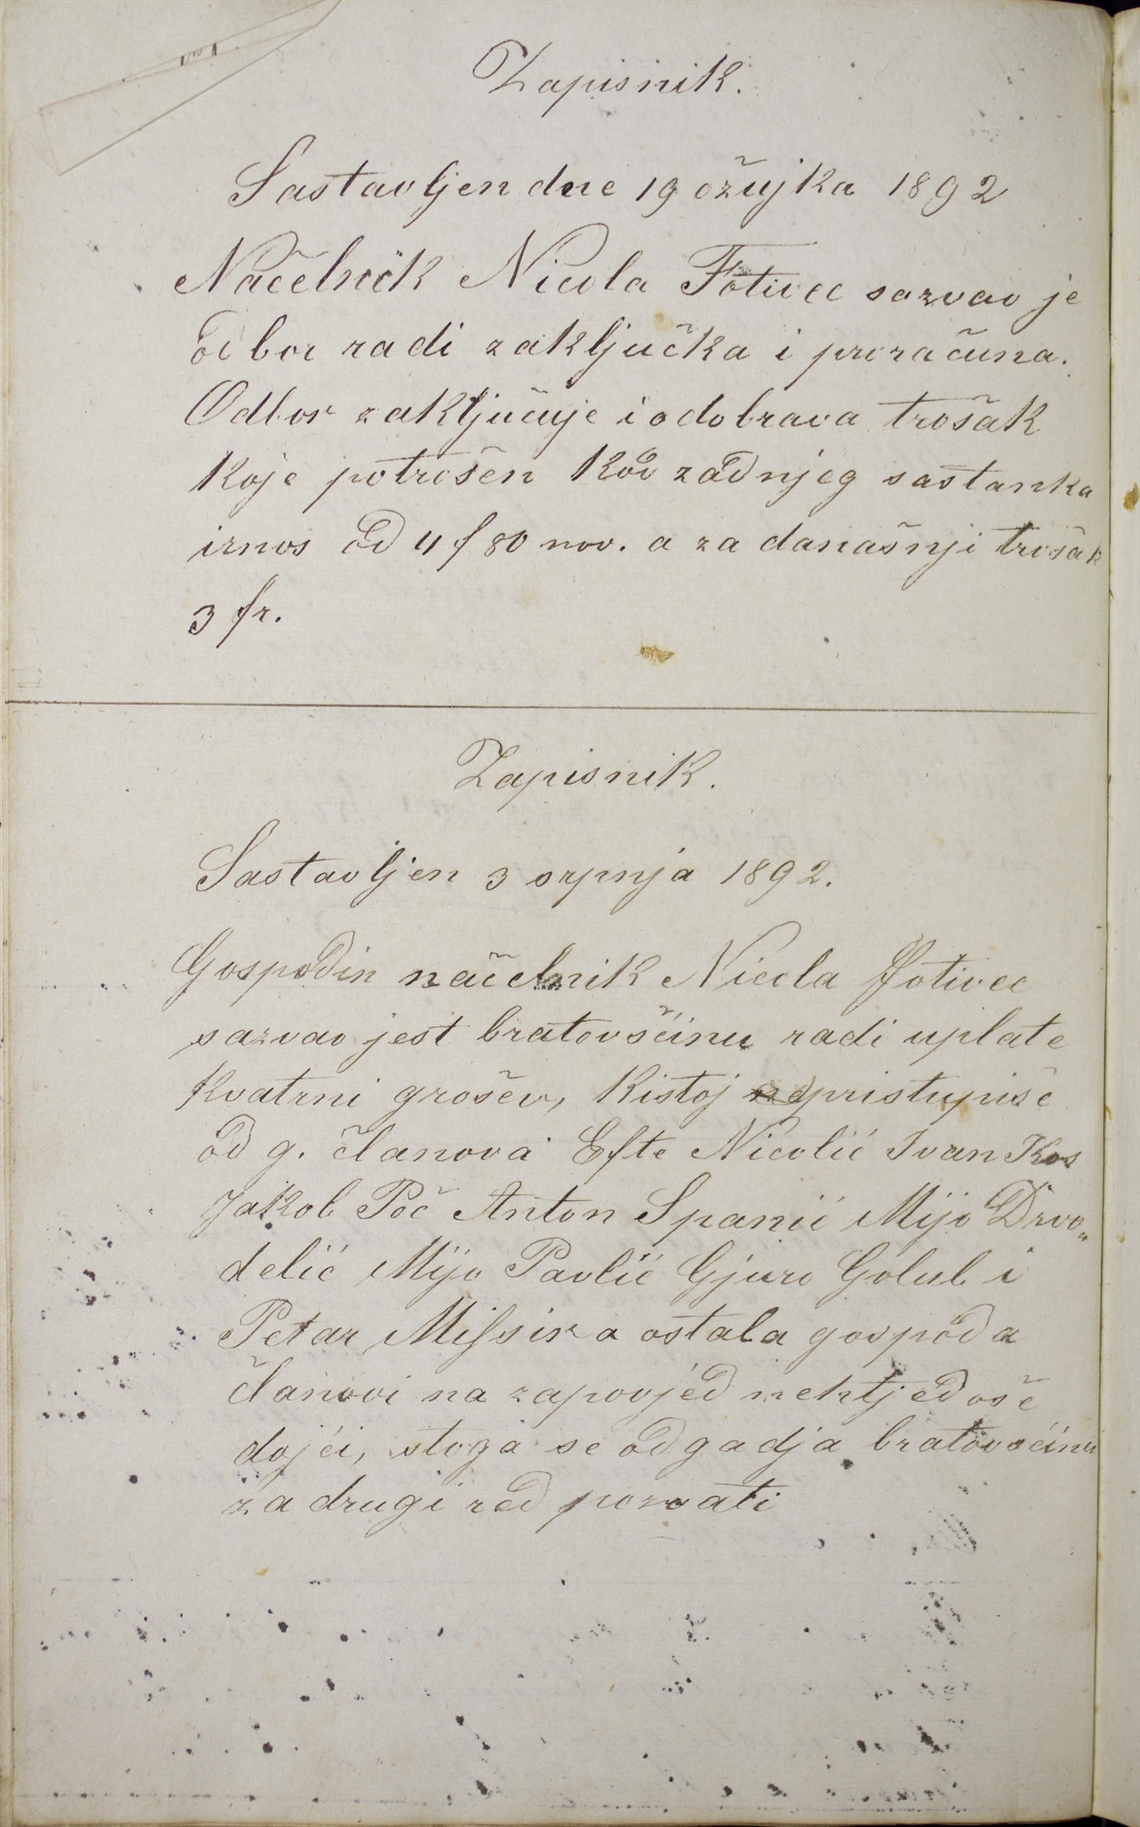 Zapisnik.
Sastavljen dne 19 ožujka 1892
Načelnik Nicola Fotivec sazvao je
odbor radi zaključka i proračuna.
Odbor zaključuje i odobrava trošak
koje potrošen kod zadnjeg sastanka
iznos od 4 f 80 nov. a za današnji trošak
3 fr.
Zapisnik.
Sastavljen 3 srpnja 1892.
Gospodin načelnik Nicola Fotivec
sazvao jest bratovšćinu radi uplate
kvatrni groševa, kistoj pristupiše
od g. članova Efte Nicolić Ivan Kos
Jakob Poč Anton Spanić Mijo Drvo„
delić Mijo Pavlić Gjuro Golub i
Petar Missir a ostala gospoda
članovi na zapovjed nehtjedoše
dojći, stoga se odgadja bratovsćinu
za drugi red pozvati